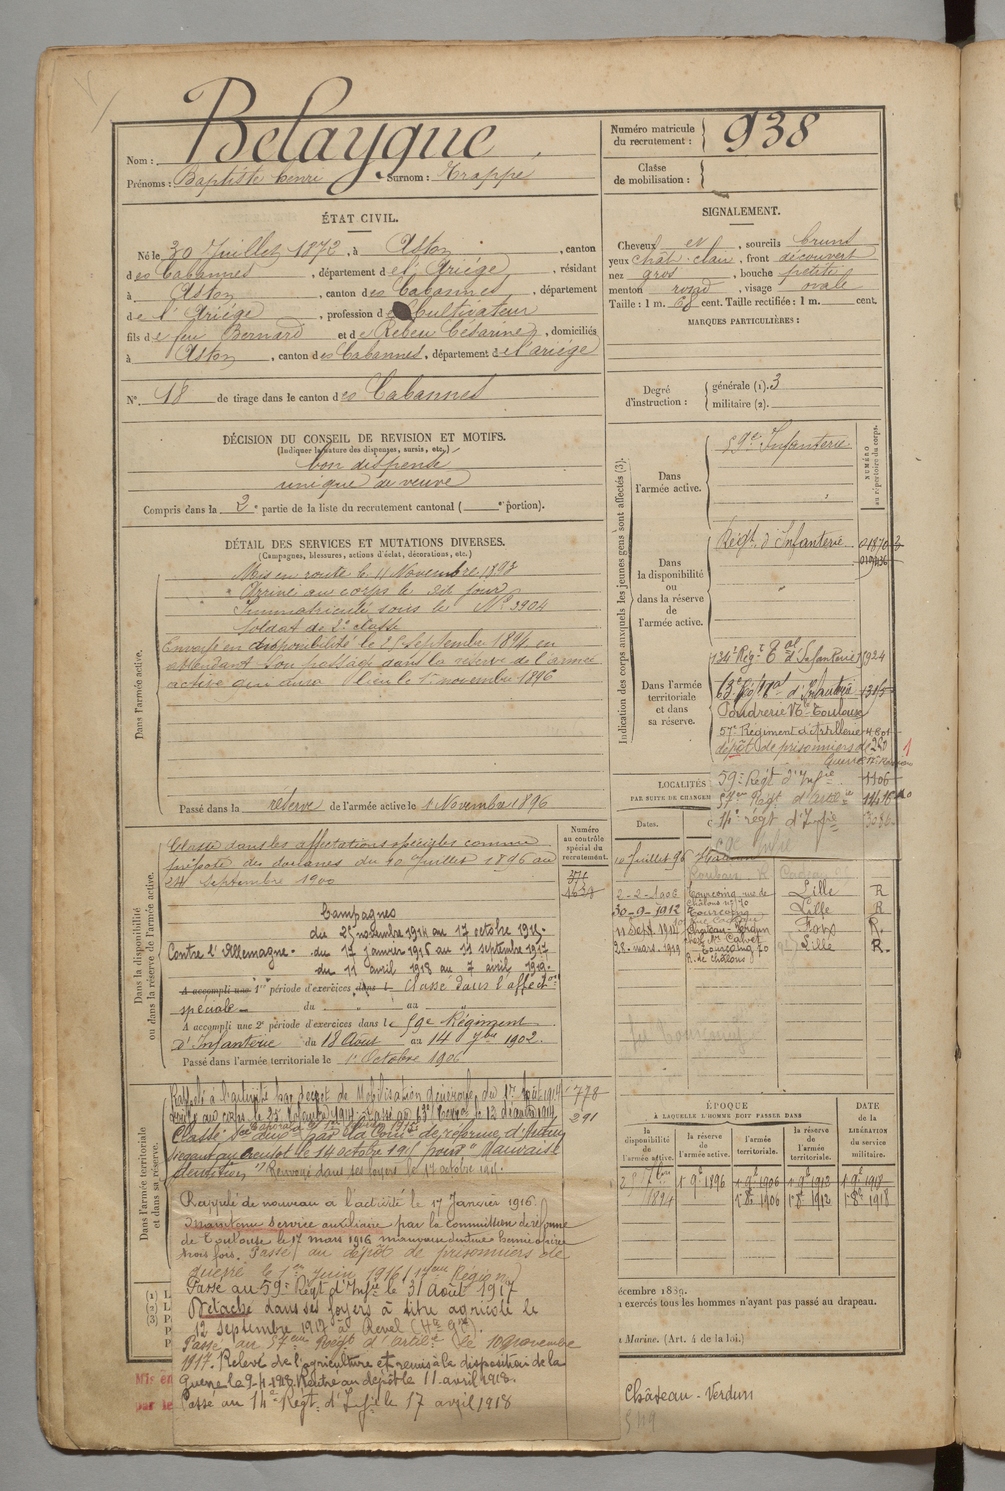 Nom : Belaygue
Prénoms : Baptiste Henri Surnom : Trappé
Numéro matricule du recrutement : 938
Classe de mobilisation :
ÉTAT CIVIL.
Né le 30 Juillet 1872, à Aston, canton
des Cabannes, département de l'Ariège, résidant
à Aston, canton des Cabannes, département
de l'Ariège, profession de Cultivateur
fils de feu Bernard et de Rebeu Césarine, domiciliés
à Aston, canton des Cabannes, département de l'ariège
N° 18 de tirage dans le canton des Cabannes
DÉCISION DU CONSEIL DE REVISION ET MOTIFS.
(Indiquer la nature des dispenses, sursis, etc.)
bon dispensé
unique de veuve
Compris dans la 2e partie de la liste du recrutement cantonal ( e portion).
DÉTAIL DES SERVICES ET MUTATIONS DIVERSES.
(Campagnes, blessures, actions d'éclat, décorations, etc.)
Dans l'armée active.
Mis en route le 11 Novembre 1893
Arrivé au corps le dit jour
Immatriculé sous le N° 3904
Soldat de 2e classe
Envoyé en disponibilité le 25 Septembre 1894 en
attendant son passage dans la réserve de l'armée
active qui aura lieu le 1er novembre 1896
Passé dans la réserve de l'armée active le 1 Novembre 1896
Dans la disponibilité ou dans la réserve de l'armée active.
Numéro au contrôle spécial du recrutement.
Classé dans les affectations spéciales comme
préposé des douanes du 10 Juillet 1896 au
24 Septembre 1900
Campagnes
du 25 novembre 1914 au 17 octobre 1915.
Contre l'Allemagne. du 17 janvier 1916 au 11 septembre 1917
du 11 avril 1918 au 7 avril 1919.
A accompli une 1re période d'exercices dans l Classé dans l'affecton
spéciale du au
A accompli une 2e période d'exercices dans le 59e Régiment
d'Infanterie du 18 Août au 14 7bre 1902.
Passé dans l'armée territoriale le 1er Octobre 1906
Dans l'armée territoriale et dans sa réserve.
Rappelé à l'activité par décret de Mobilisation générale du 1er Août 1914 778
Arrivé au corps le 25 Novembre 1914. Passé au 63e Terral le 12 décembre 1914 291
Classé Sce auxre par la Comon de réforme d'Autun
siégeant au Creusot le 14 octobre 1915 pour "Mauvaise
dentition" Renvoyé dans ses foyers le 17 octobre 1915.
Rappelé de nouveau à l'activité le 17 Janvier 1916.
Maintenu service auxiliaire par la commission de réforme
de Toulouse le 17 mars 1916 mauvaise denture hernie opérée
trois fois. Passé au dépôt de prisonniers de
guerre le 1er Juin 1916 (17eme Région)
Passé au 59e Régt d'Infie le 31 Août 1917
Détaché dans ses foyers à titre agricole le
12 septembre 1917 à Revel (Hte Gne).
Passé au 57eme Régt d'artile le 10 novembre
1917. Relevé de l'agriculture et remis à la disposition de la
Guerre le 9-4-1918. Rentré au dépôt le 11 avril 1918.
Passé au 14e Régt d'Infie le 17 avril 1918
Mis en
par le
SIGNALEMENT.
Cheveux et, sourcils bruns
yeux chât. clair, front découvert
nez gros, bouche petite
menton rond, visage ovale
Taille : 1 m. 68 cent. Taille rectifiée : 1 m. cent.
MARQUES PARTICULIÈRES :
Degré d'instruction : générale (1). 3
militaire (2).
Indication des corps auxquels les jeunes gens sont affectés (3).
NUMÉRO au répertoire du corps.
Dans l'armée active. 59e Infanterie
Dans la disponibilité ou dans la réserve de l'armée active. Régt d'Infanterie
Dans l'armée territoriale et dans sa réserve.
134e Régt Tal d'Infanterie 1924
63e Régt Tal d'Infanterie 1315
Poudrerie Nle Toulouse
57e Régiment d'Artillerie
dépôt de prisonniers de 220
guerre 17e Région
59e Régt d'Infie 1106
57eme Régt d'Artile
14e régt d'Infie
59e Infie
LOCALITÉS
PAR SUITE DE CHANGEM
Dates.
10 Juillet 96
2-2-1906 Tourcoing rue de Châlons n° 70 Lille R
30-9-1912 Tourcoing Lille R
11 Sept. 1914 Château-Verdun Foix R.
28. mars. 1919 Tourcoing 70 R. de Châlons Lille R.
ÉPOQUE
À LAQUELLE L'HOMME DOIT PASSER DANS
DATE de la LIBÉRATION du service militaire.
la disponibilité de l'armée active. la réserve de l'armée active. l'armée territoriale. la réserve de l'armée territoriale.
25 7bre 1894 1 9e 1896 1 9e 1906 1 9e 1912 1 9e 1918
1 8e 1906 1 8e 1912 1 8e 1918
écembre 1889.
n exercés tous les hommes n'ayant pas passé au drapeau.
a Marine. (Art. 4 de la loi.)
Château-Verdun